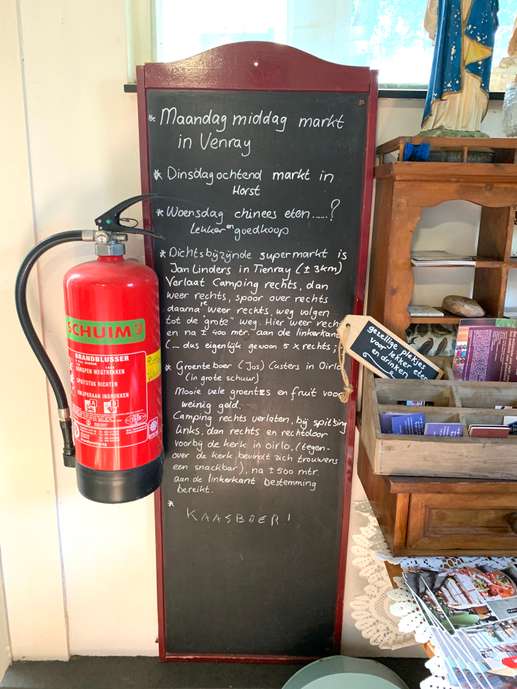 * Maandag middag markt
in Venray
* Dinsdagochtend markt in
Horst
* Woensdag chinees eten......?
Lekker en goedkoop
* Dichtsbijzijnde supermarkt is
Jan Linders in Tienray (± 3km)
Verlaat Camping rechts, dan
weer rechts, spoor over rechts
daarna weer rechts, weg volgen
tot de "grote" weg. Hier weer rechts
en na ± 400 mtr. aan de linkerkant
(... dus eigenlijk gewoon 5 x rechts;
* Groenteboer (Jos) Custers in Oirlo
(in grote schuur)
Mooie vele groentes en fruit voor
weinig geld.
Camping rechts verlaten, bij splitsing
links, dan rechts en rechtdoor
voorbij de kerk in Oirlo, (tegen-
over de kerk bevindt zich trouwens
een snackbar), na ± 500 mtr.
aan de linkerkant bestemming
bereikt.
*
KAASBOER!
SCHUIM
BRANDBLUSSER
gezellige plekjes
voor lekker eten
en drinken